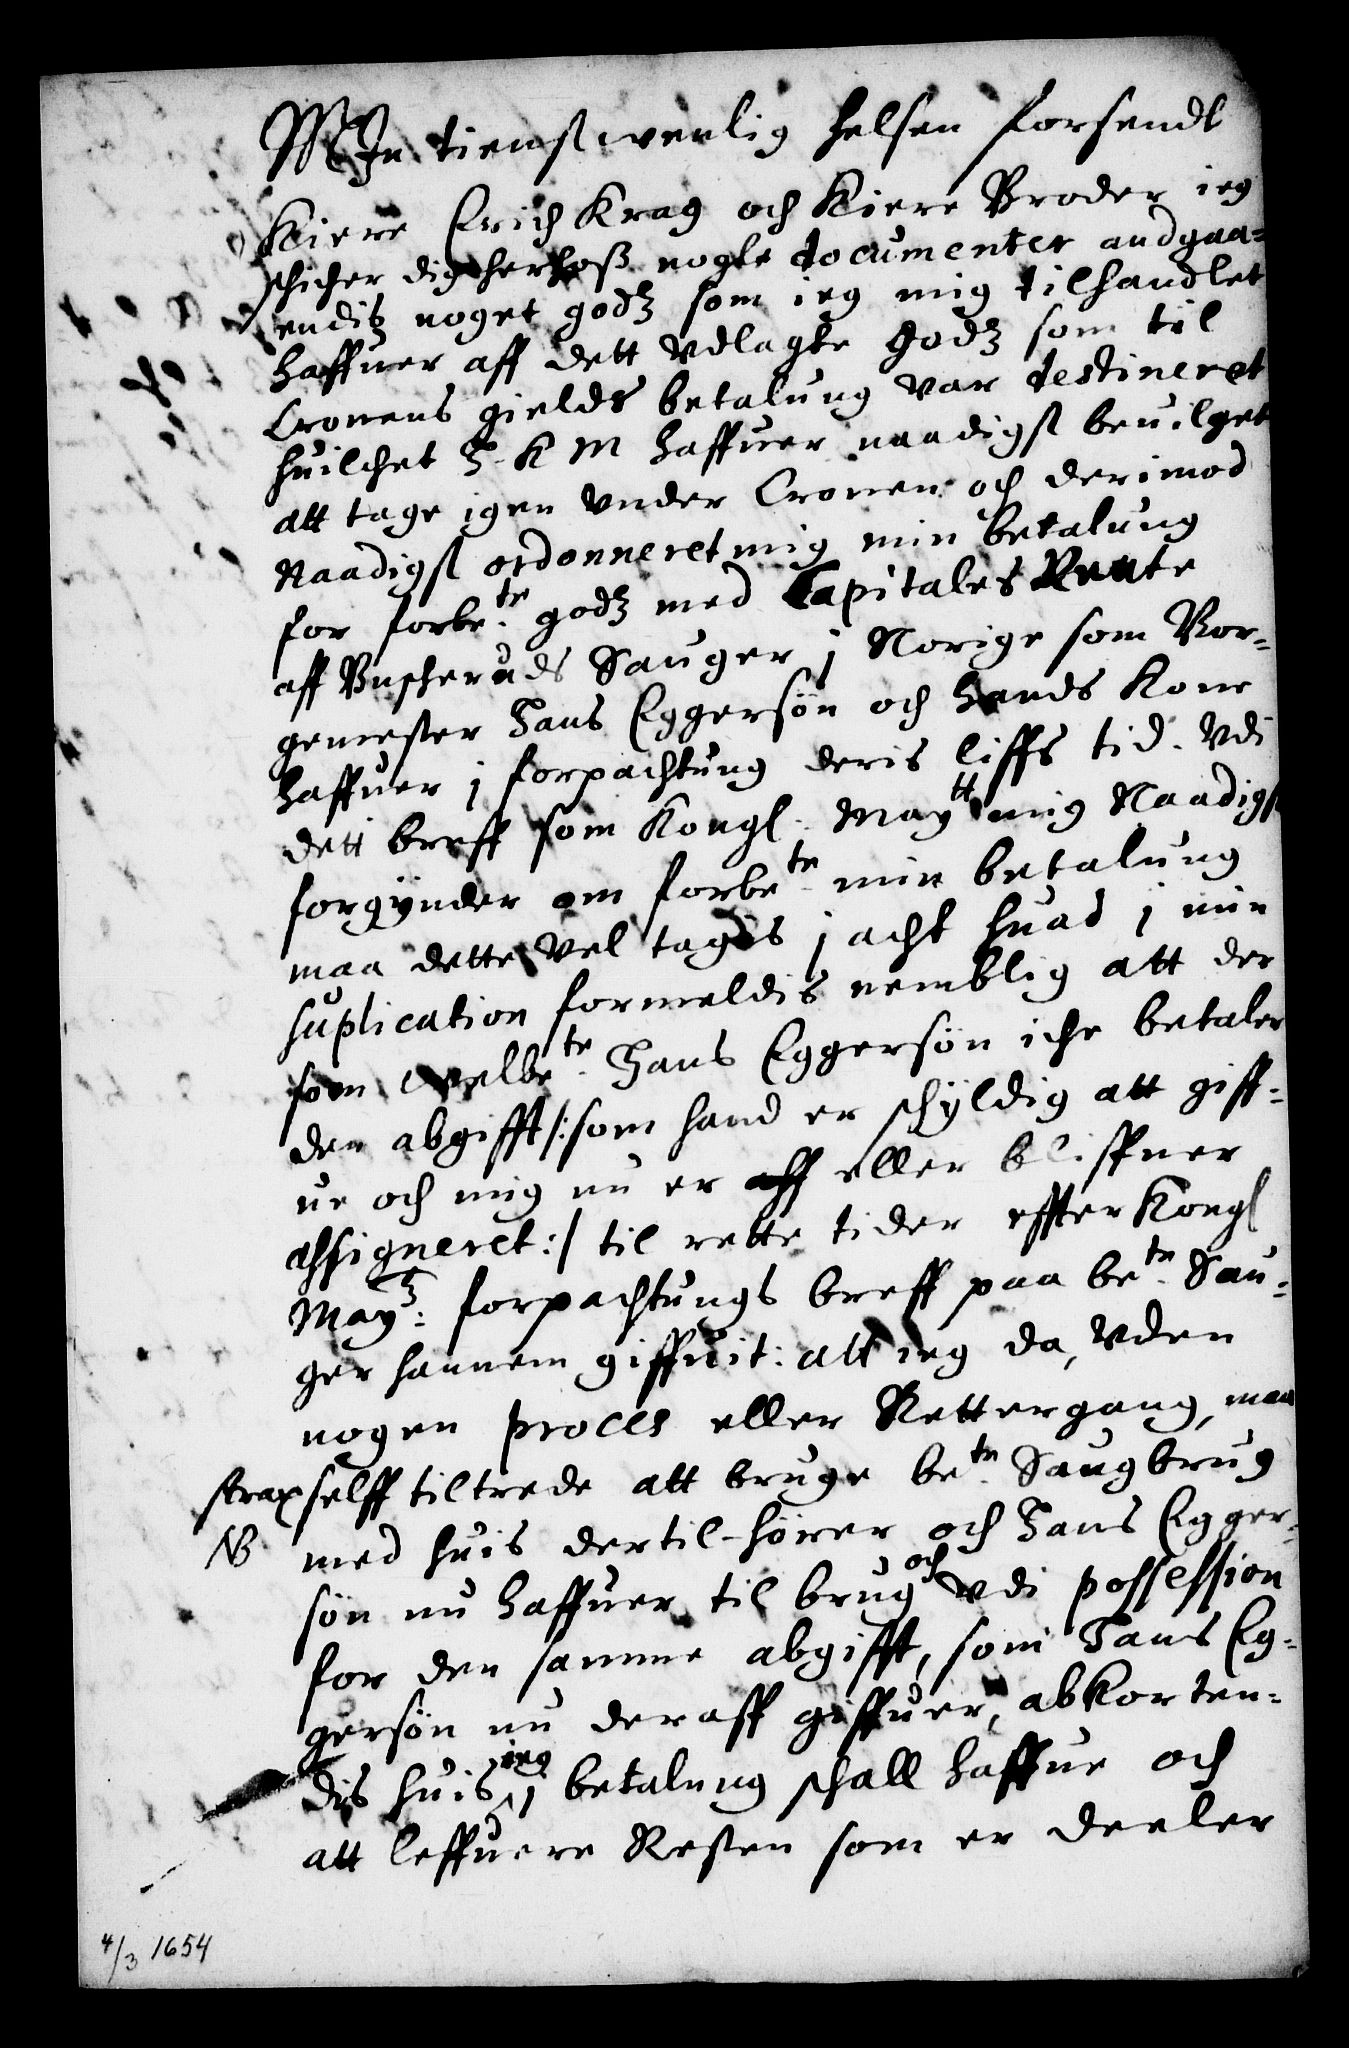 MIn tienst wenlig helsen forsendt
Kiere Erich Krag och Kiere Broder ieg
schicher dig herhoß nogle documenter andgaa=
endis noget godz som ieg mig tilhandlet
haffuer aff dett vdlagte godz som til
Cronens gields betalung var destineret
huilchet H. K M haffuer naadigst beuilget
att tage igen vnder Cronen och derimod
Naadigst ordonneret mig min betalung
for forbete. godz med Capitales Rente
aff Buscheruds Sauger j Norige som Bor=
gemester Hans Eggersøn och hands Kone
haffuer j forpachtung deris liffs tid. Vdi
dett breff som Kongl. Maytt mig Naadigst
forgÿnder om forbete. min betalung
maa dette vel tagis j acht huad j min
suplication formeldis nemblig att der
som welbete. Hans Eggersøn iche betaler
den abgifft /:som hand er schÿldig att giff=
ue och mig nu er aff eller bliffuer
assigneret:/ til rette tider effter Kongl
Mayz: forpachtungs breff paa bete. Sau=
ger hannem giffuit: att ieg da, vden
nogen proces eller Rettergang, maa
strax selff tiltrede att bruge bete. Saugbrug
NB med huis dertil-hører och Hans Egger=
søn nu haffuer til brug och vdi possession
for den samme abgifft, som Hans Eg=
gersøn nu deraff giffuer, abkorten=
dis huis ieg j betalung schall haffue och
att leffuere Resten som er deeler
4/3 1654